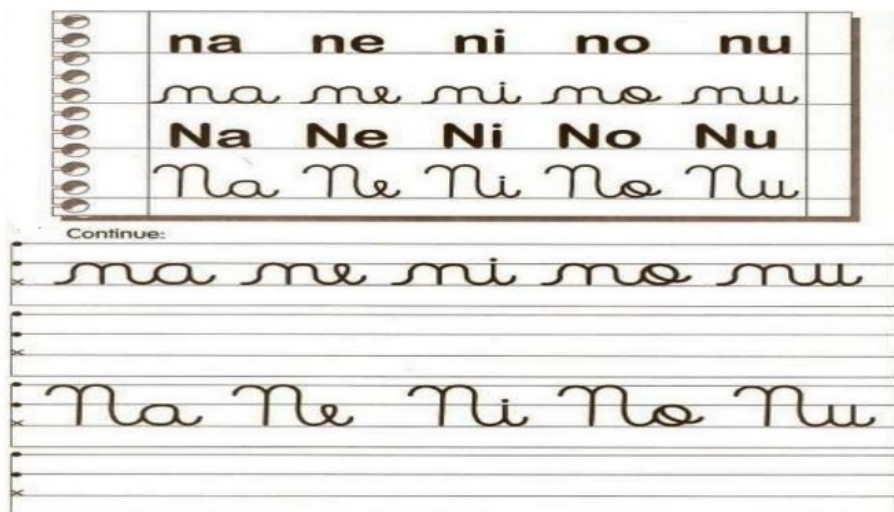 na ne ni no nu
na ne ni no nu
Na Ne Ni No Nu
Na Ne Ni No Nu
Continue:
na ne ni no nu
Na Ne Ni No Nu